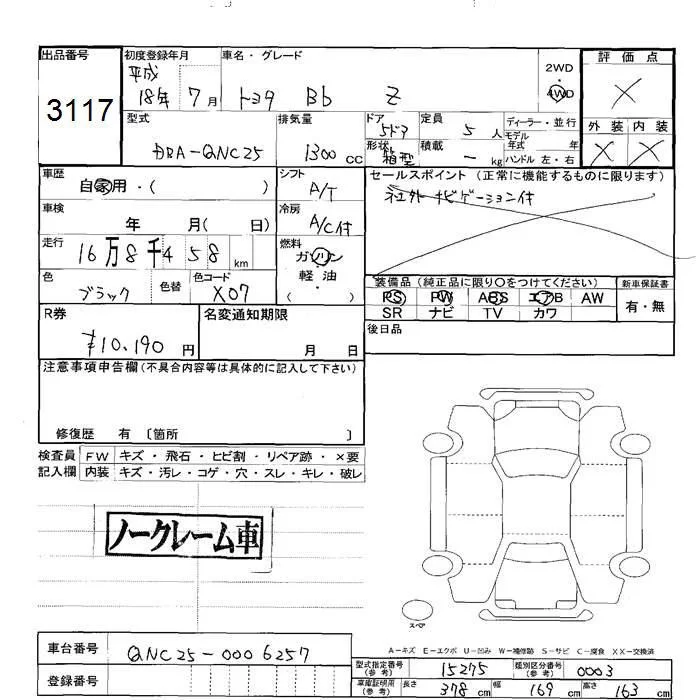 出品番号 初度登録年月 車名・グレード 2WD 評価点
3117 平成 18年 7月 トヨタ Bb Z 4WD ×
型式 排気量 ドア 定員 ディーラー・並行 外装 内装
DBA-QNC25 1300 CC 5ドア 5人 モデル年式 年式 × ×
形状 箱型 積載 － kg ハンドル 左・右
車歴 シフト セールスポイント (正常に機能するものに限ります)
自家用・( ) A/T 社外ナビゲーション付
車検 冷房
年 月( 日) A/C付
走行 燃料
16万8千458 km ガソリン
軽・油
( )
色 色替 色コード 装備品 (純正品に限り○をつけてください) 新車保証書
ブラック X07 PS PW ABS エアB AW 有・無
SR ナビ TV カワ
R券 名変通知期限 後日品
¥10,190 円 月 日
注意事項申告欄 (不具合内容等は具体的に記入して下さい)
修復歴 有 〔箇所 〕
検査員 FW キズ・飛石・ヒビ割・リペア跡・×要
記入欄 内装 キズ・汚レ・コゲ・穴・スレ・キレ・破レ
ノークレーム車
スペア
A－キズ E－エクボ U－凹み W－補修跡 S－サビ C－腐食 XX－交換済
車台番号 QNC25-0006257
登録番号
型式指定番号(参考) 15275 類別区分番号(参考) 0003
車庫証明用(参考) 長さ 378 cm 幅 169 cm 高さ 163 cm